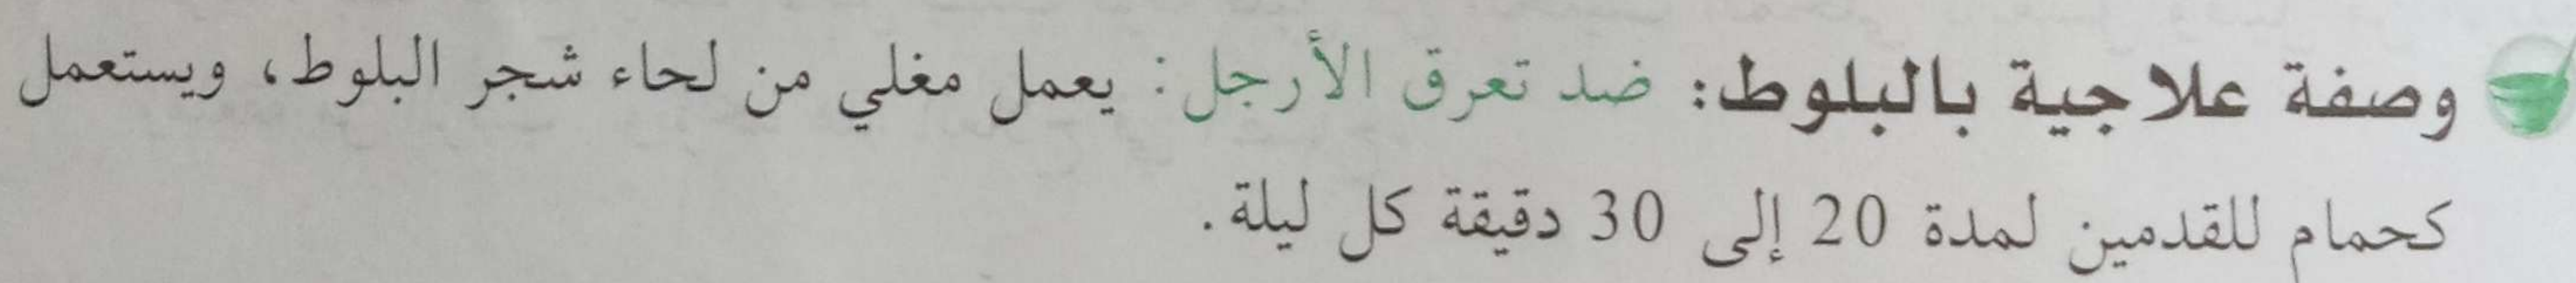 وصفة علاجية بالبلوط: ضد تعرق الأرجل: يعمل مغلي من لحاء شجر البلوط، ويستعمل
كحمام للقدمين لمدة 20 إلى 30 دقيقة كل ليلة.